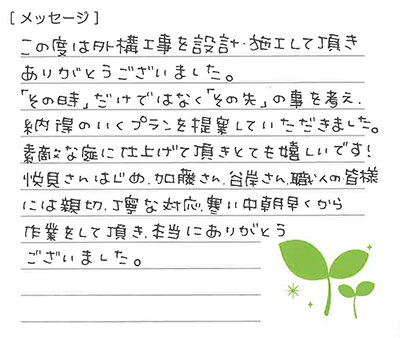 [メッセージ]
この度は外構工事を設計・施工して頂き
ありがとうございました。
「その時」だけではなく「その先」の事を考え、
納得のいくプランを提案していただきました。
素敵な庭に仕上げて頂きとても嬉しいです!
悦貝さんはじめ、加藤さん、谷岸さん、職人の皆様
には親切、丁寧な対応、寒い中朝早くから
作業をして頂き、本当にありがとう
ございました。